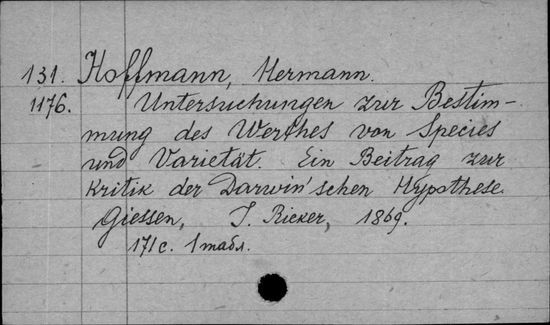 131. Hoffmann, Hermann.
1176. Untersuchungen zur Bestim-
mung des Werthes von Species
und Varietät. Ein Beitrag zur
Kritik der Darwin'schen Hypothese.
Giessen, J. Ricker, 1869.
171 с. 1 табл.